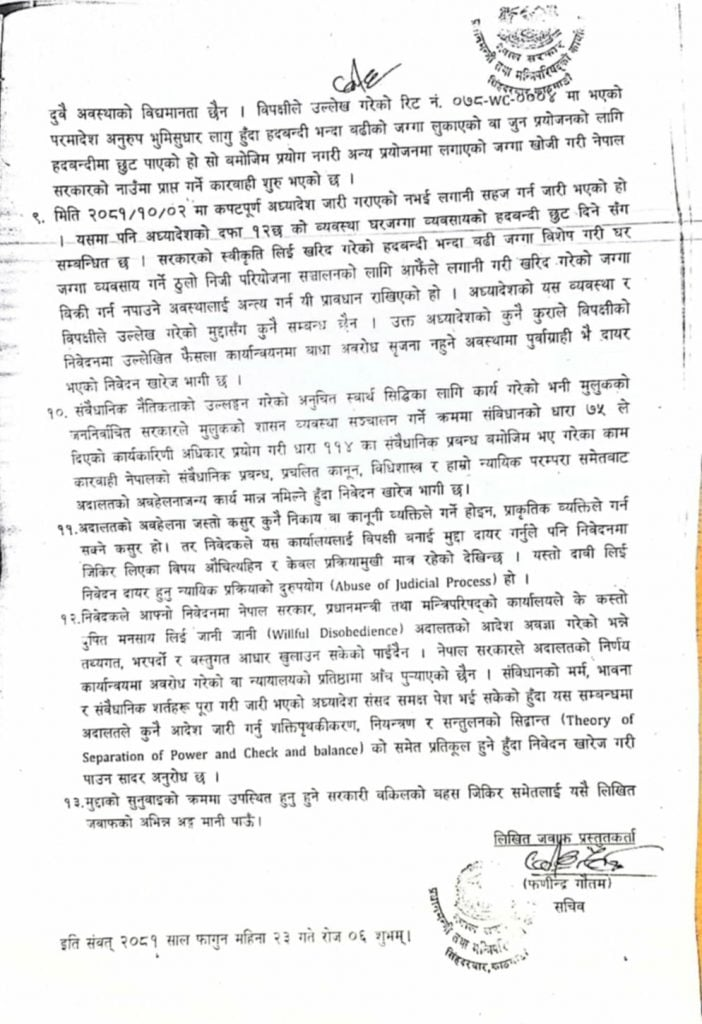 नेपाल सरकार
प्रधानमन्त्री तथा मन्त्रिपरिषद्को
सिंहदरबार, काठमाडौं
दुवै अवस्थाको विद्यमानता छैन । विपक्षीले उल्लेख गरेको रिट नं. ०७८-WC-०००४ मा भएको
परमादेश अनुरुप भुमिसुधार लागु हुँदा हदबन्दी भन्दा बढीको जग्गा लुकाएको वा जुन प्रयोजनको लागि
हदबन्दीमा छुट पाएको हो सो बमोजिम प्रयोग नगरी अन्य प्रयोजनमा लगाएको जग्गा खोजी गरी नेपाल
सरकारको नाउँमा प्राप्त गर्ने कारवाही शुरु भएको छ ।
९. मिति २०८१/१०/०२ मा कपटपूर्ण अध्यादेश जारी गराएको नभई लगानी सहज गर्न जारी भएको हो
। यसमा पनि अध्यादेशको दफा १२छ को व्यवस्था घरजग्गा व्यवसायको हदबन्दी छुट दिने सँग
सम्बन्धित छ । सरकारको स्वीकृति लिई खरिद गरेको हदबन्दी भन्दा बढी जग्गा विशेष गरी घर
जग्गा व्यवसाय गर्ने ठुलो निजी परियोजना सञ्चालनको लागि आफैंले लगानी गरी खरिद गरेको जग्गा
बिक्री गर्न नपाउने अवस्थालाई अन्त्य गर्न यी प्रावधान राखिएको हो । अध्यादेशको यस व्यवस्था र
विपक्षीले उल्लेख गरेको मुद्दासँग कुनै सम्बन्ध छैन । उक्त अध्यादेशको कुनै कुराले विपक्षीको
निवेदनमा उल्लेखित फैसला कार्यान्वयनमा बाधा अवरोध सृजना नहुने अवस्थामा पुर्वाग्राही भै दायर
भएको निवेदन खारेज भागी छ ।
१०. संवैधानिक नैतिकताको उल्लङ्घन गरेको अनुचित स्वार्थ सिद्धिका लागि कार्य गरेको भनी मुलुकको
जननिर्वाचित सरकारले मुलुकको शासन व्यवस्था सञ्चालन गर्ने क्रममा संविधानको धारा ७५ ले
दिएको कार्यकारिणी अधिकार प्रयोग गरी धारा ११४ का संवैधानिक प्रबन्ध बमोजिम भए गरेका काम
कारवाही नेपालको संवैधानिक प्रबन्ध, प्रचलित कानून, विधिशास्त्र र हाम्रो न्यायिक परम्परा समेतबाट
अदालतको अवहेलनाजन्य कार्य मान्न नमिल्ने हुँदा निवेदन खारेज भागी छ।
११.अदालतको अवहेलना जस्तो कसुर कुनै निकाय वा कानूनी व्यक्तिले गर्ने होइन, प्राकृतिक व्यक्तिले गर्न
सक्ने कसुर हो। तर निवेदकले यस कार्यालयलाई विपक्षी बनाई मुद्दा दायर गर्नुले पनि निवेदनमा
जिकिर लिएका विषय औचित्यहिन र केवल प्रक्रियामुखी मात्र रहेको देखिन्छ । यस्तो दावी लिई
निवेदन दायर हुनु न्यायिक प्रक्रियाको दुरुपयोग (Abuse of Judicial Process) हो ।
१२.निवेदकले आफ्नो निवेदनमा नेपाल सरकार, प्रधानमन्त्री तथा मन्त्रिपरिषद्को कार्यालयले के कस्तो
दुषित मनसाय लिई जानी जानी (Willful Disobedience) अदालतको आदेश अवज्ञा गरेको भन्ने
तथ्यगत, भरपर्दो र वस्तुगत आधार खुलाउन सकेको पाईंदैन । नेपाल सरकारले अदालतको निर्णय
कार्यान्वयमा अवरोध गरेको वा न्यायालयको प्रतिष्ठामा आँच पुऱ्याएको छैन । संविधानको मर्म, भावना
र संवैधानिक शर्तहरू पूरा गरी जारी भएको अध्यादेश संसद समक्ष पेश भई सकेको हुँदा यस सम्बन्धमा
अदालतले कुनै आदेश जारी गर्नु शक्तिपृथकीकरण, नियन्त्रण र सन्तुलनको सिद्वान्त (Theory of
Separation of Power and Check and balance) को समेत प्रतिकूल हुने हुँदा निवेदन खारेज गरी
पाउन सादर अनुरोध छ ।
१३.मुद्दाको सुनुवाइको क्रममा उपस्थित हुनु हुने सरकारी वकिलको बहस जिकिर समेतलाई यसै लिखित
जवाफको अभिन्न अङ्ग मानी पाऊँ।
लिखित जवाफ प्रस्तुतकर्ता
(फणीन्द्र गौतम)
सचिव
प्रधानमन्त्री तथा मन्त्रिपरि
सिंहदरबार, काठमाडौं
इति संबत् २०८१ साल फागुन महिना २३ गते रोज ०६ शुभम्।